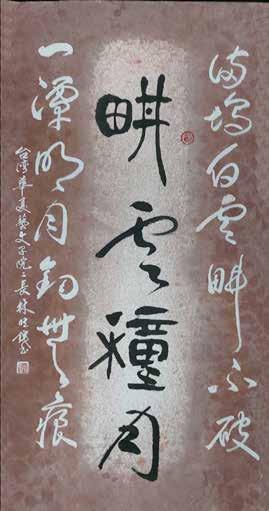 滿塢白雲畊不破
畊雲穜月
一潭明月釣無痕
台灣華夏藝文學院院長林